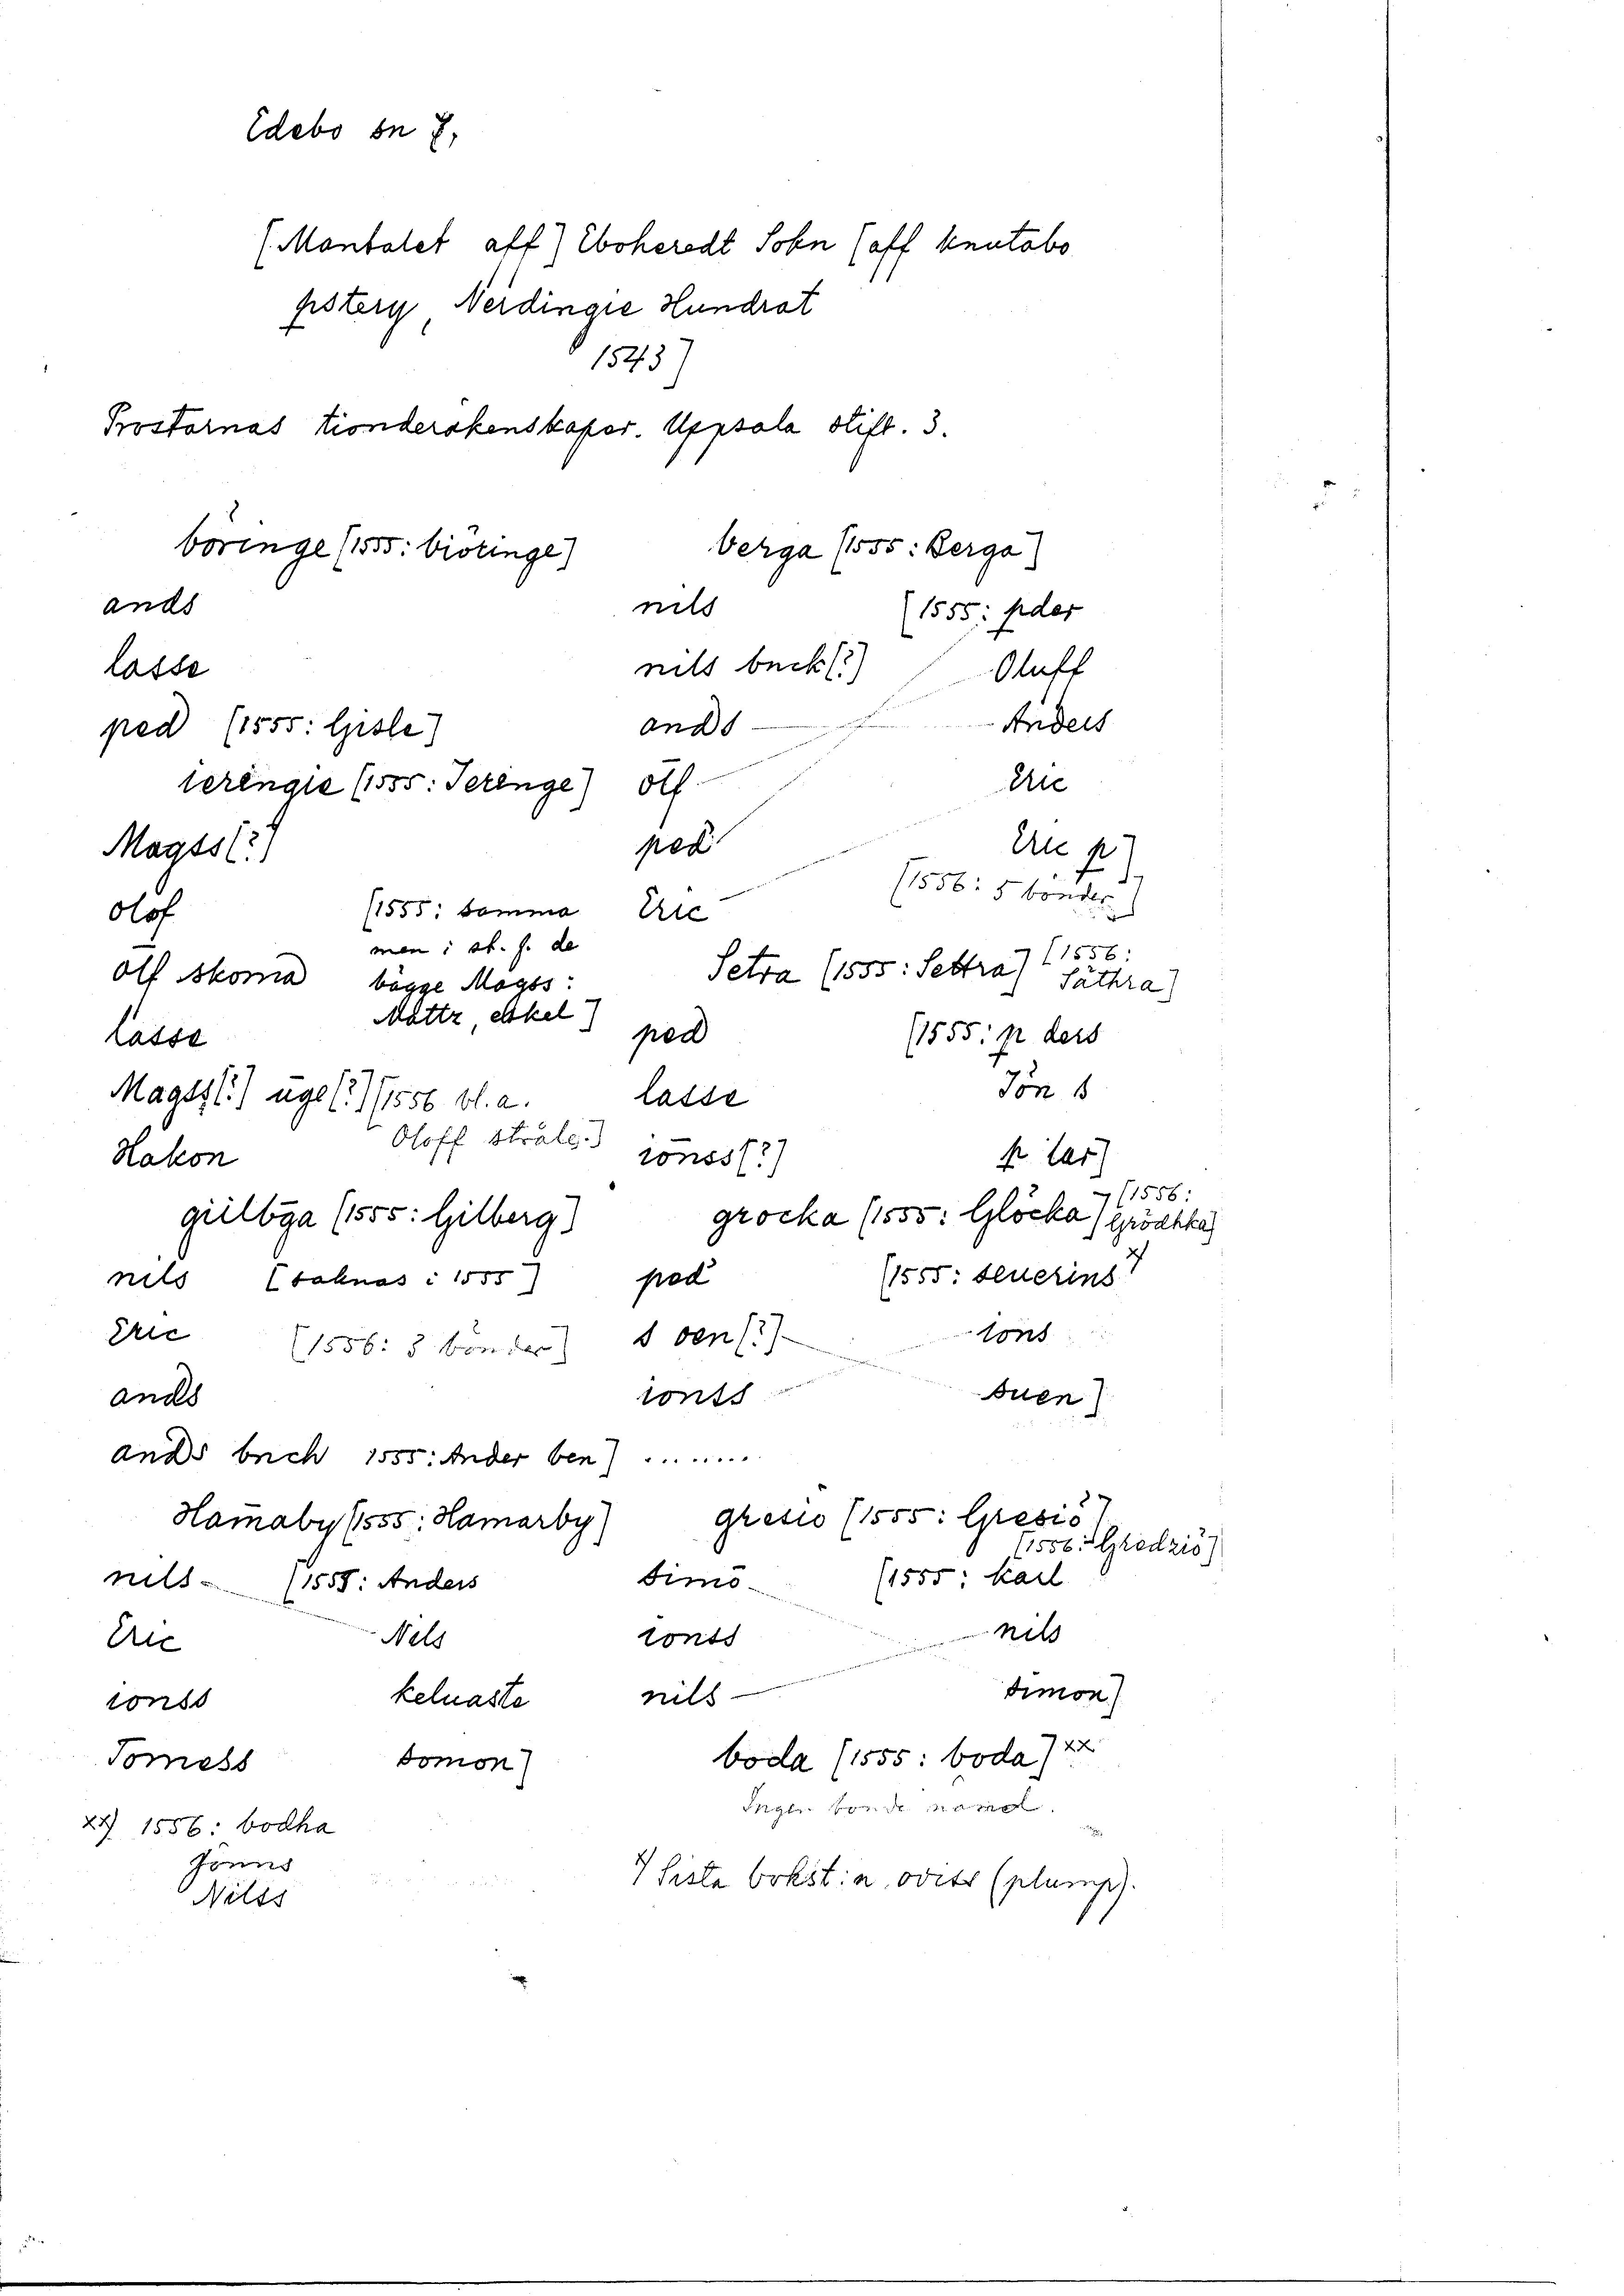 Edebo sn 7,
[Mantalet aff] Eboheredt Sokn [aff knutabo
pstery, Nerdingie Hundrat
1543]
Prostarnas tionderäkenskaper. Uppsala stift. 3.
böringe [1555: biöringe]
ands
lasse
ped [1555: Gisle]
ierengie [1555: Jerenge]
Magss[?]
olof
[1555: samma
men i st. f. de
olf skoma
bägge Magss:
Mattz, eskel]
lasse
Magss[?] uge[?] [1556 bl.a.
Oloff stråle]
Hakon
giilbga [1555: Gilberg]
nils [saknas i 1555]
Eric [1556: 3 bönder]
ands
ands bnch 1555: Ander ben]
Hamaby [1555: Hamarby]
nils [1555: Anders
Eric Nels
ionss keluaste
Tomess somon]
xx) 1556: bodha
Jönns
Nilss
berga [1555: Berga]
nils [1555: pder
nils buck[?] Oluff
ands Anders
olf Eric
ped Eric p]
Eric [1556: 5 bönder]
Setra [1555: Settra] [1556:
Säthra]
ped [1555: p ders
lasse Jön s
ionss[?] p lar]
grocka [1555: Glöcka] [1556:
Grödhka]
ped [1555: seuerins x)
s oen[?] ions
ionss suen]
........
gresio [1555: Gresiö]
[1556: Gredziö]
simo [1555: karl
ionss nils
nils simon]
boda [1555: boda] xx
Ingen bonde nämd.
x) Sista bokst:n oviss (plump).